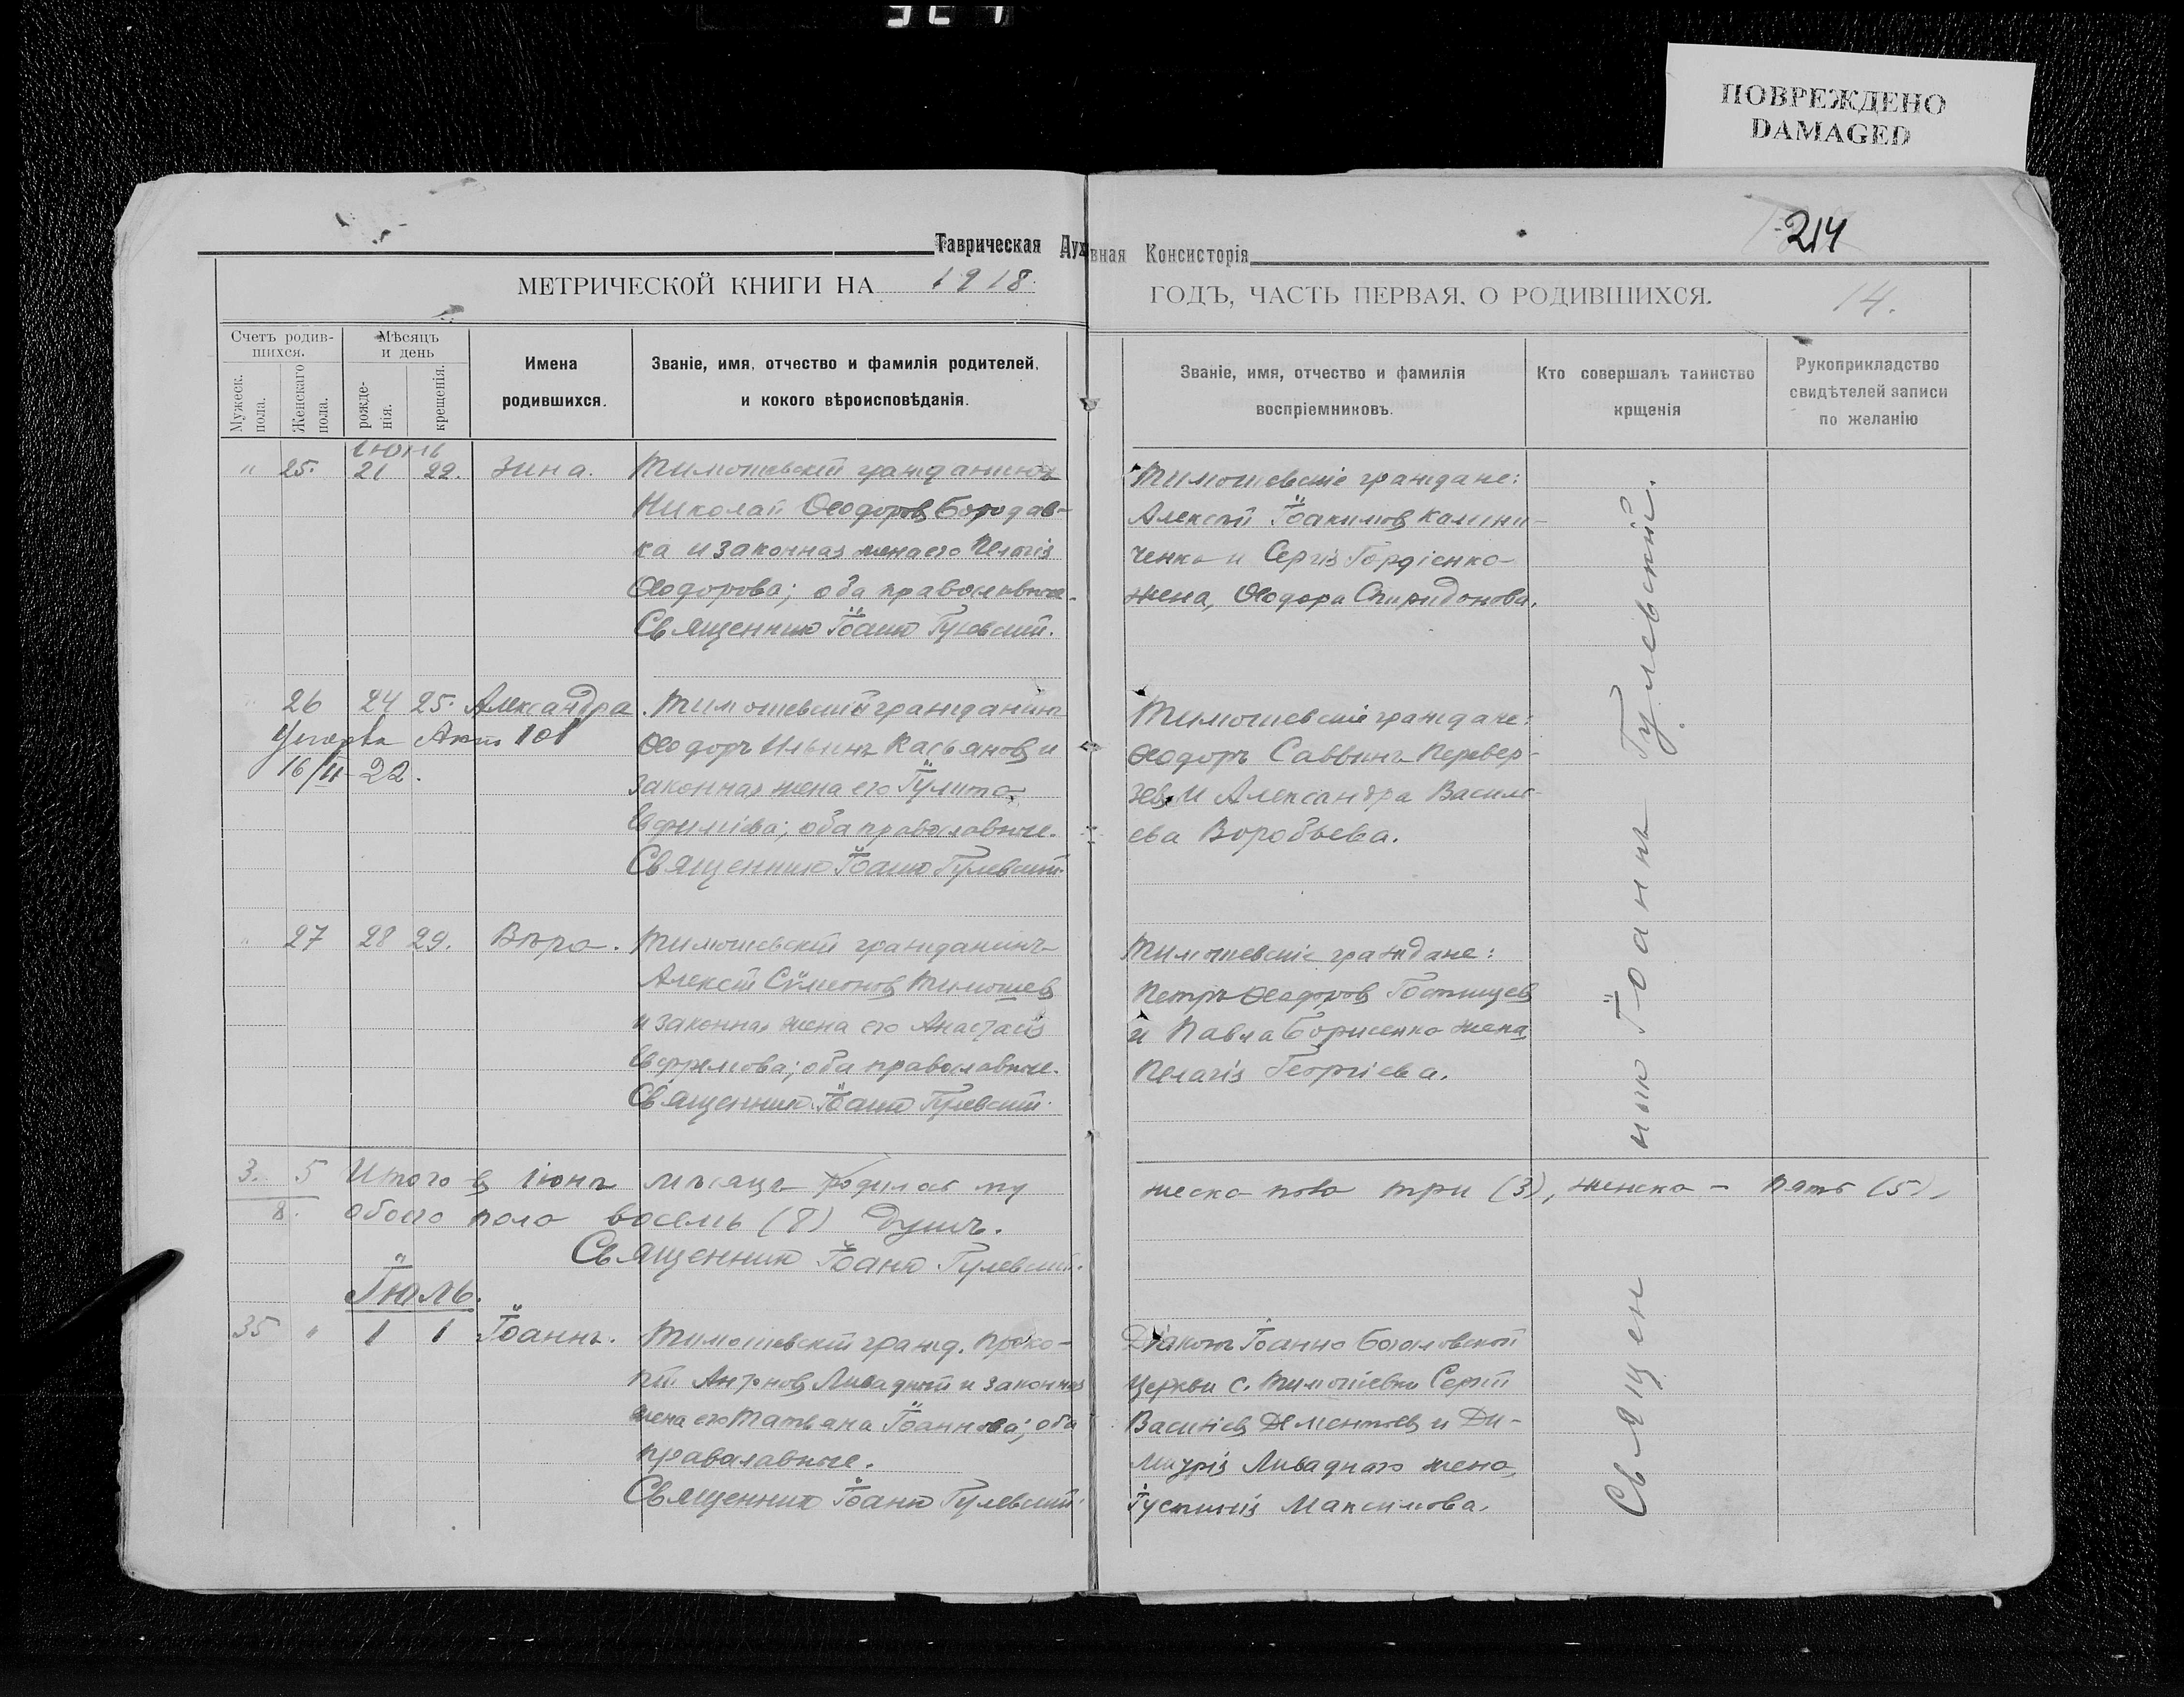 ПОВРЕЖДЕНО
DAMAGED
214
Таврическая Духвная Консисторія
МЕТРИЧЕСКОЙ КНИГИ НА 1918 ГОДЪ, ЧАСТЬ ПЕРВАЯ, О РОДИВШИХСЯ. 14.
Счетъ родив-
шихся.
Мужеск.
пола.
Женскаго
пола.
Мѣсяцъ
и день
рожде-
нія.
крещенія.
Имена
родившихся.
Званіе, имя, отчество и фамилія родителей,
и кокого вѣроисповѣданія.
Званіе, имя, отчество и фамилія
воспріемниковъ.
Кто совершалъ таинство
крщенія
Рукоприкладство
свидѣтелей записи
по желанію
Іюнь
" 25. 21 22. Зина. Тимошевскій гражданинъ
Николай Ѳеодоровъ Бородав-
ка и законная жена его Пелагія
Ѳеодорова; оба православные.
Священникъ Іоаннъ Гулевскій.
Тимошевскіе граждане:
Алексѣй Іоакимовъ Калини-
ченко и Сергія Гордіенко
жена, Ѳеодора Спиридонова.
" 26 24 25. Александра. Тимошевскій гражданинъ
Ѳеодоръ Ильинъ Касьяновъ и
законная жена его Іулитта
Евфиміева; оба православные.
Священникъ Іоаннъ Гулевскій.
Умерла Актъ 101
16/II-22.
Тимошевскіе граждане:
Ѳеодоръ Саввинъ Перевер-
зевъ и Александра Василь-
ева Воробьева.
" 27 28 29. Вѣра. Тимошевскій гражданинъ
Алексѣй Сѵмеоновъ Тимошевъ
и законная жена его Анастасія
Ефремова; оба православные.
Священникъ Іоаннъ Гулевскій.
Тимошевскіе граждане:
Петръ Ѳеодоровъ Гостищевъ
и Павла Борисенко жена
Пелагія Георгіева.
3. 5 Итого въ Іюнѣ мѣсяцѣ родилось му
жеска пола три (3), женска - пять (5),
8. обоего пола восемь (8) душъ.
Священникъ Іоаннъ Гулевскій.
Іюль.
35 " 1 1 Іоаннъ. Тимошевскій гражд. Проко-
пій Ливадный и законная
жена его Татьяна Іоаннова; оба
православные.
Священникъ Іоаннъ Гулевскій.
Діаконъ Іоанно Богословской
церкви с. Тимошевки Сергій
Василіевъ Дементьевъ и Ди-
митрія Ливаднаго жена,
Іустинія Максимова.
Священникъ Іоаннъ Гулевскій.